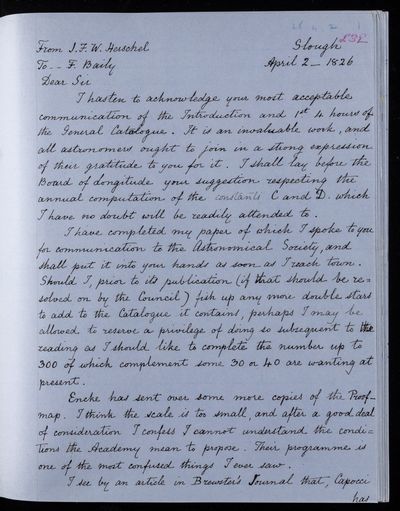 From J. F. W. Herschel
Slough
To -- F. Baily
April 2 _ 1826
Dear Sir
I hasten to acknowledge your most acceptable
communication of the Introduction and 1st 4 hours of
the General Catalogue. It is an invaluable work, and
all astronomers ought to join in a strong expression
of their gratitude to you for it. I shall lay before the
Board of Longitude your suggestion respecting the
annual computation of the constants C and D. which
I have no doubt will be readily attended to.
I have completed my paper of which I spoke to you
for communication to the Astronomical Society, and
shall put it into your hands as soon as I reach town.
Should I, prior to its publication (if that should be re=
solved on by the Council) fish up any more double stars
to add to the Catalogue it contains, perhaps I may be
allowed to reserve a privilege of doing so subsequent to the
reading as I should like to complete the number up to
300 of which complement some 30 or 40 are wanting at
present.
Encke has sent over some more copies of the Proof-
map. I think the scale is too small, and after a good deal
of consideration I confess I cannot understand the condi=
tions the Academy mean to propose. Their programme is
one of the most confused things I ever saw.
I see by an article in Brewster's Journal that, Capocci
has